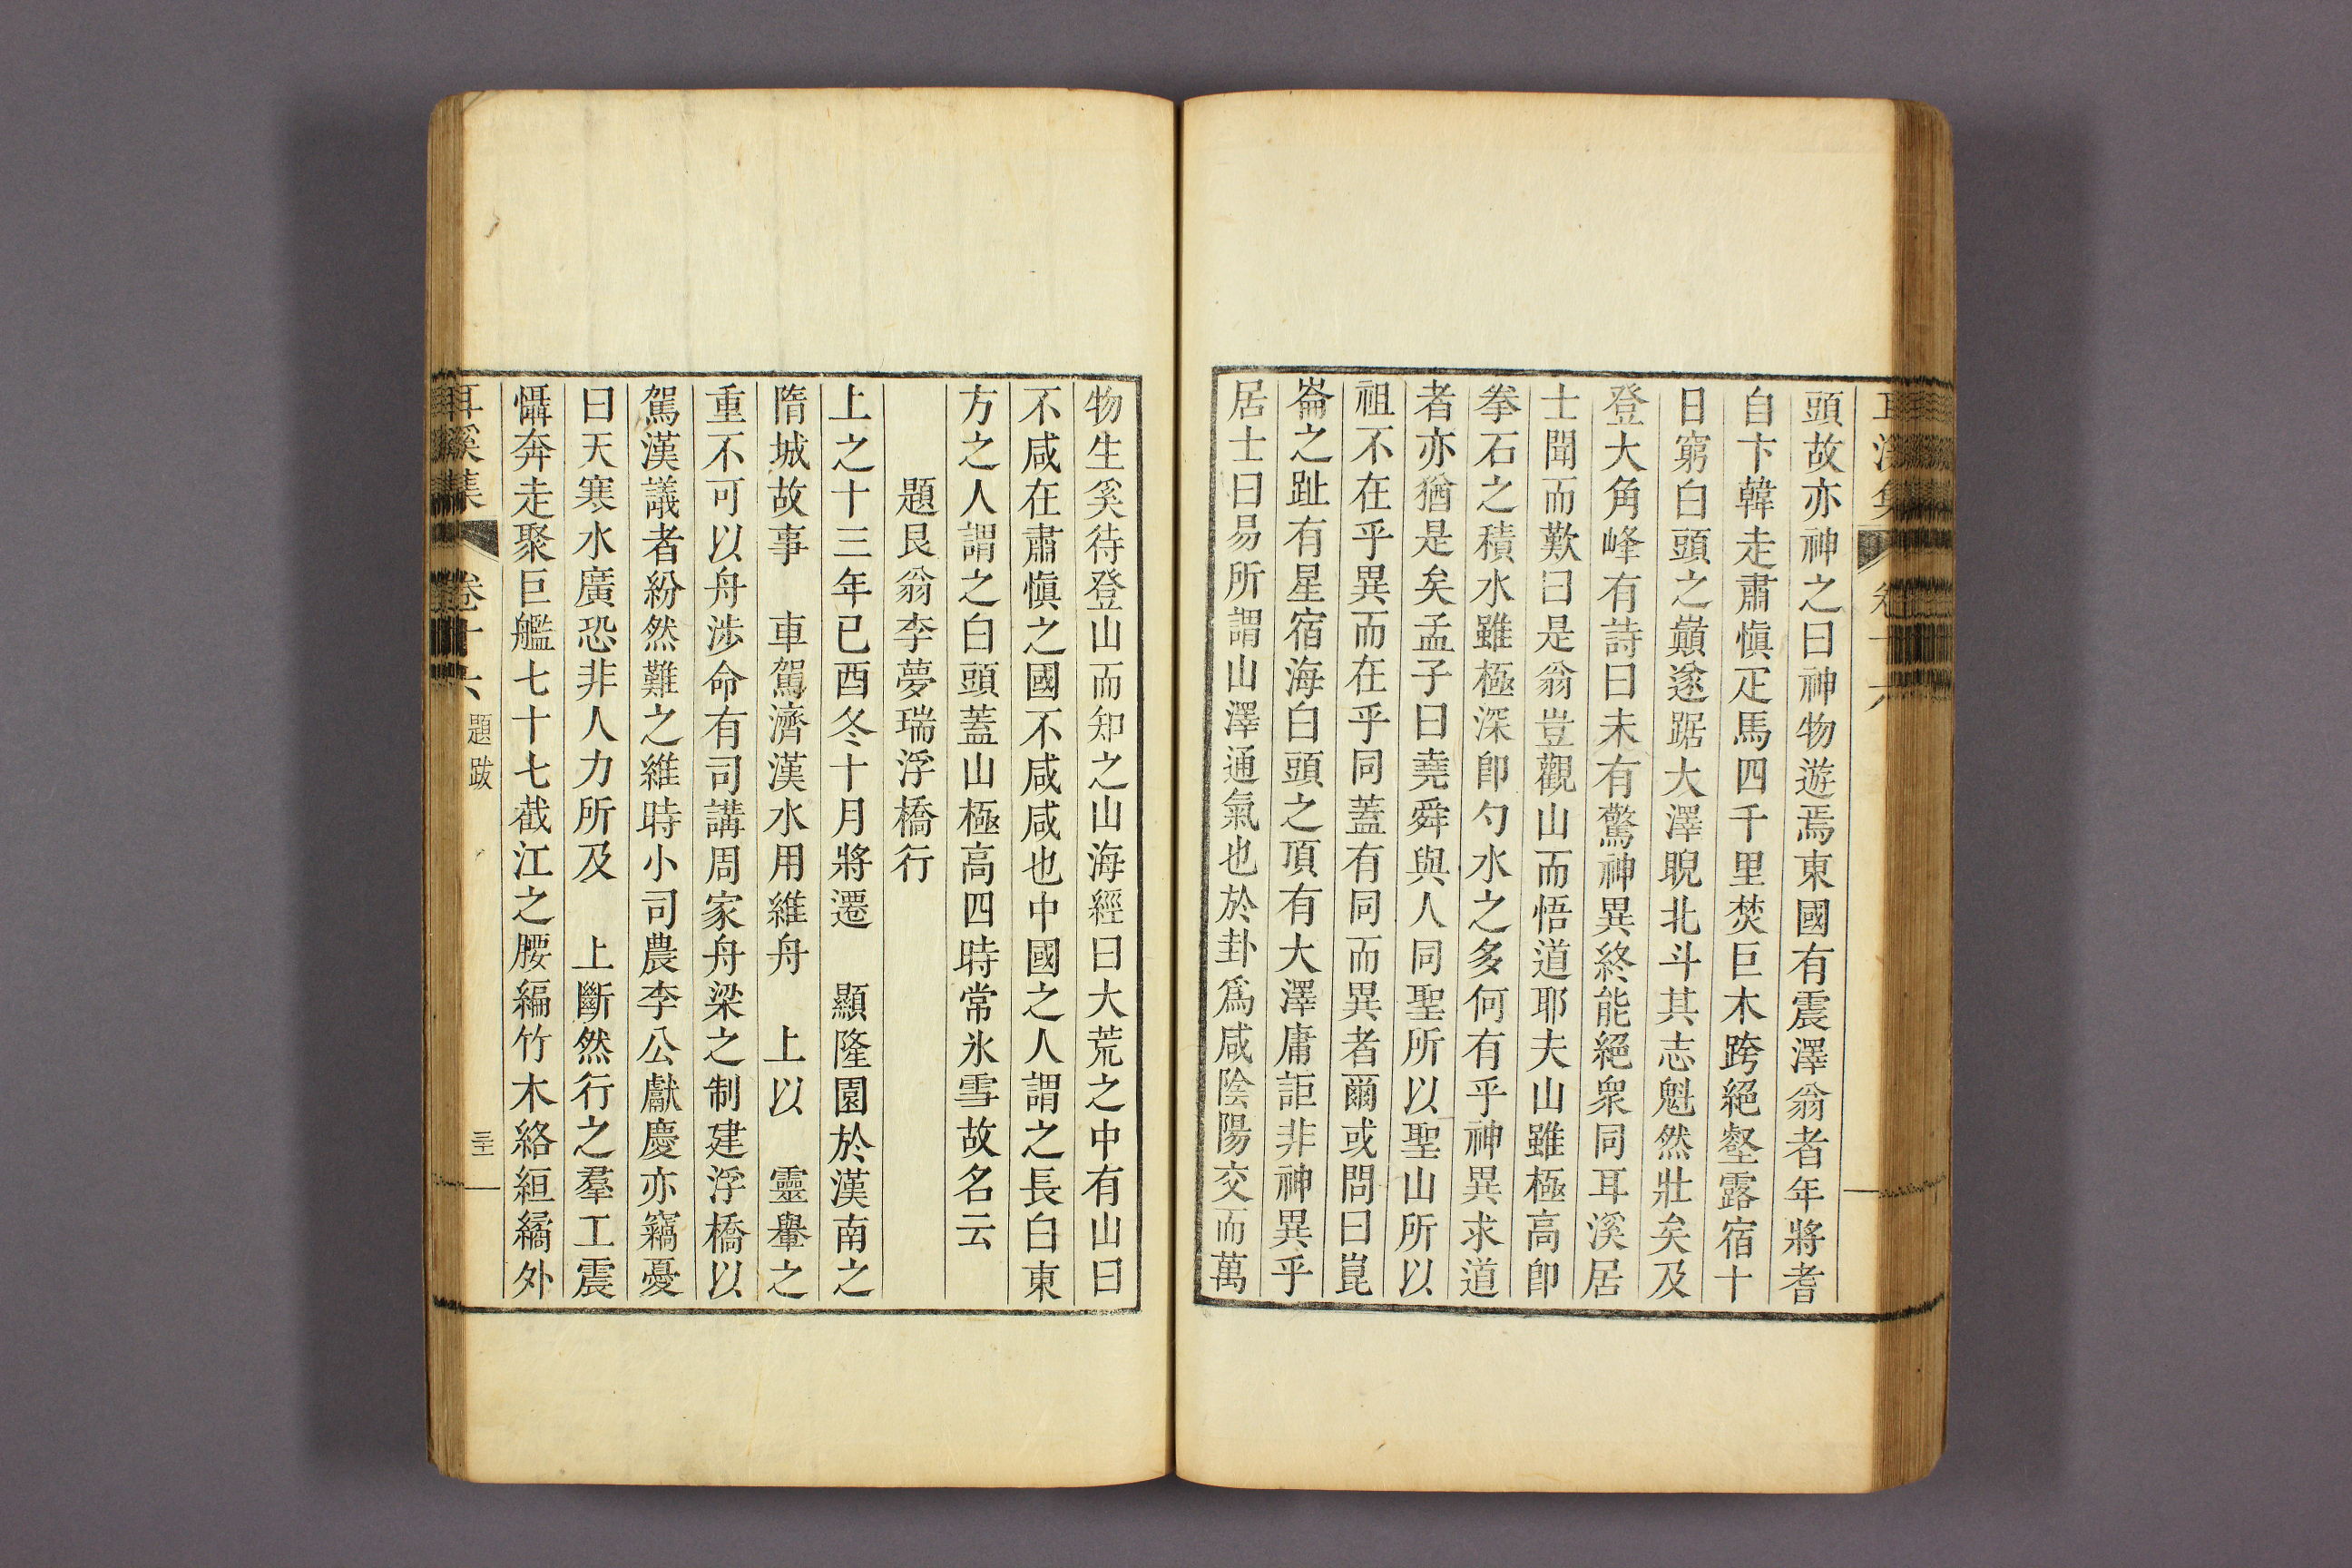 耳溪集 卷十六
頭故亦神之曰神物遊焉東國有震澤翁者年將耆
自卞韓走肅愼疋馬四千里焚巨木跨絕壑露宿十
日窮白頭之巓遂踞大澤睨北斗其志魁然壯矣及
登大角峰有詩曰未有驚神異終能絕衆同耳溪居
士聞而歎曰是翁豈觀山而悟道耶夫山雖極高卽
拳石之積水雖極深卽勺水之多何有乎神異求道
者亦猶是矣孟子曰堯舜與人同聖所以聖山所以
祖不在乎異而在乎同蓋有同而異者爾或問曰崑
崙之趾有星宿海白頭之頂有大澤庸詎非神異乎
居士曰易所謂山澤通氣也於卦爲咸陰陽交而萬
物生奚待登山而知之山海經曰大荒之中有山曰
不咸在肅愼之國不咸咸也中國之人謂之長白東
方之人謂之白頭蓋山極高四時常氷雪故名云
題艮翁李夢瑞浮橋行
上之十三年己酉冬十月將遷 顯隆園於漢南之
隋城故事 車駕濟漢水用維舟 上以 靈轝之
重不可以舟涉命有司講周家舟梁之制建浮橋以
駕漢議者紛然難之維時小司農李公獻慶亦竊憂
曰天寒水廣恐非人力所及 上斷然行之羣工震
懾奔走聚巨艦七十七截江之腰編竹木絡絙繘外
耳溪集 卷十六 題跋